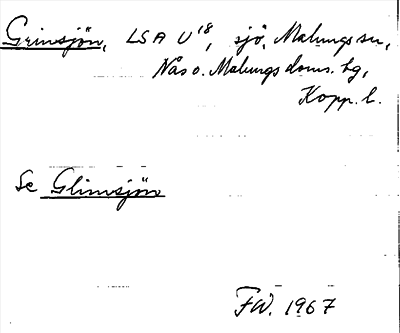 Grinsjön, LSA U¹⁸, sjö, Malungs sn,
Nås o. Malungs doms. hg,
Kopp. l.
Se Glimsjön
FW. 1967